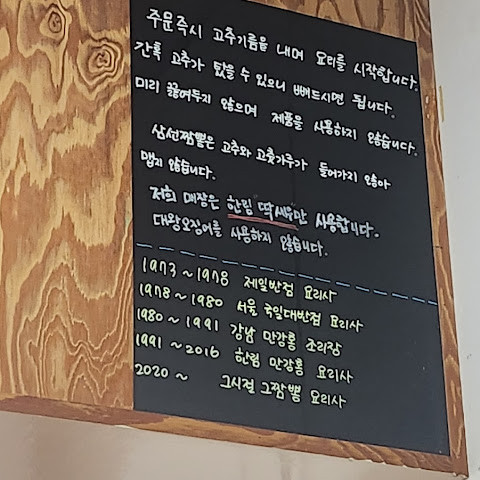 주문즉시 고추기름을 내며 요리를 시작합니다.
간혹 고추가 탔을 수 있으니 빼드시면 됩니다.
미리 끓여두지 않으며 제품을 사용하지 않습니다.
삼선짬뽕은 고추와 고춧가루가 들어가지 않아
맵지 않습니다.
저희 매장은 한림 "딱새우"만 사용합니다.
대왕오징어를 사용하지 않습니다.
1973~1978 제일반점 요리사
1978~1980 서울 국일대반점 요리사
1980~1991 강남 만강홍 조리장
1991~2016 한림 만강홍 요리사
2020~ 그시절 그짬뽕 요리사